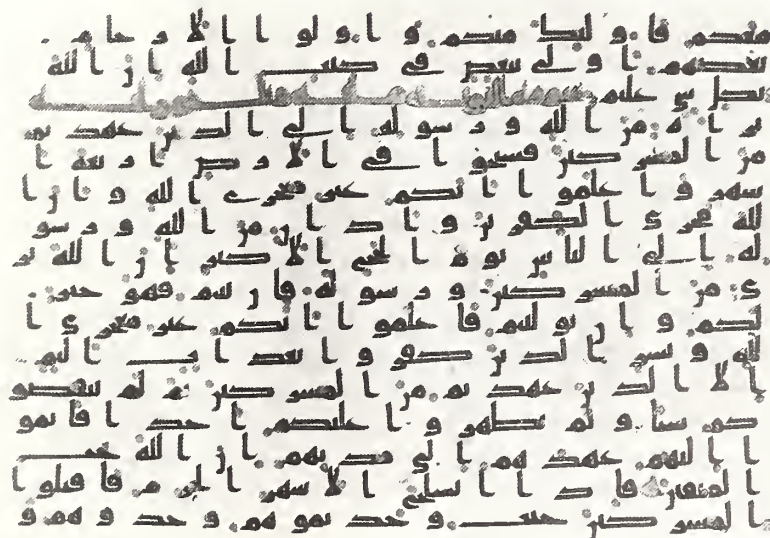 معكم فاوليك منكم واولوا الارحام
بعضهم اولى ببعض في كتب الله ان الله
بكل شي عليم
براة من الله ورسوله الى الذين عهدتم
من المشركين فسيحوا في الارض اربعة ا
شهر واعلموا انكم غير معجزي الله وان ا
لله مخزي الكفرين واذان من الله ورسو
له الى الناس يوم الحج الاكبر ان الله بر
ي من المشركين ورسوله فان تبتم فهو خير
لكم وان توليتم فاعلموا انكم غير معجزي ا
لله وبشر الذين كفروا بعذاب اليم
الا الذين عهدتم من المشركين ثم لم ينقصو
كم شيا ولم يظهروا عليكم احدا فاتمو
ا اليهم عهدهم الى مدتهم ان الله يحب
المتقين فاذا انسلخ الاشهر الحرم فاقتلوا
المشركين حيث وجدتموهم وخذوهم و